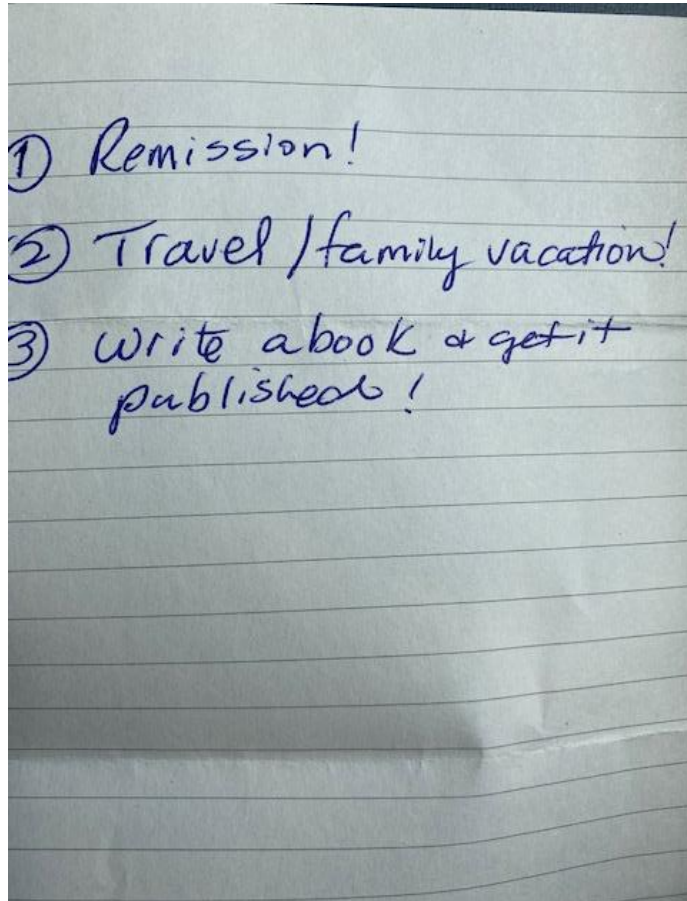 ① Remission!
② Travel / family vacation!
③ Write a book & get it
published!